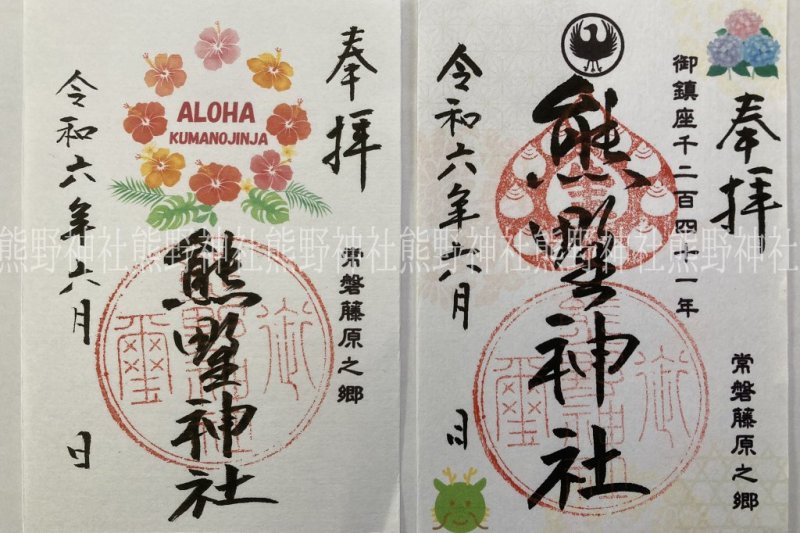 奉拝
ALOHA
KUMANOJINJA
常磐藤原之郷
熊野神社
令和六年六月 日
奉拝
御鎮座千二百四十一年
常磐藤原之郷
熊野神社
令和六年六月 日
熊野神社熊野神社熊野神社熊野神社熊野神社熊野神社